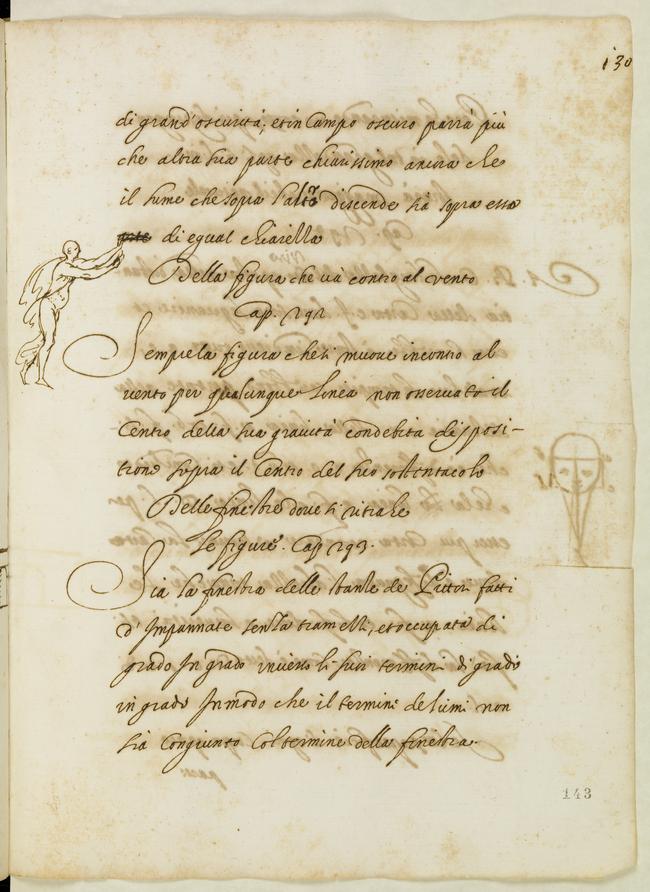 130
di grand'oscurità, et in Campo oscuro parrà più
che altra sua parte chiarissimo ancora che
il lume che sopra l'altre discende sia sopra essa
di egual chiarezza
Della figura che và contro al vento
Cap. 292
Sempre la figura che si muove incontro al
vento per qualunque linea non osserva il
Centro della sua gravità con debita disposi-
tione sopra il Centro del suo sostentacolo
Delle finestre dove si ritrahe
le figure. Cap 293.
Sia la finestra delle stanze de Pittori fatti
d'Impannate senza tramezzi, et occupata di
grado In grado inverso li suoi termini di gradi
in grado In modo che il termini de lumi non
sia Congiunto Col termine della finestra.
143